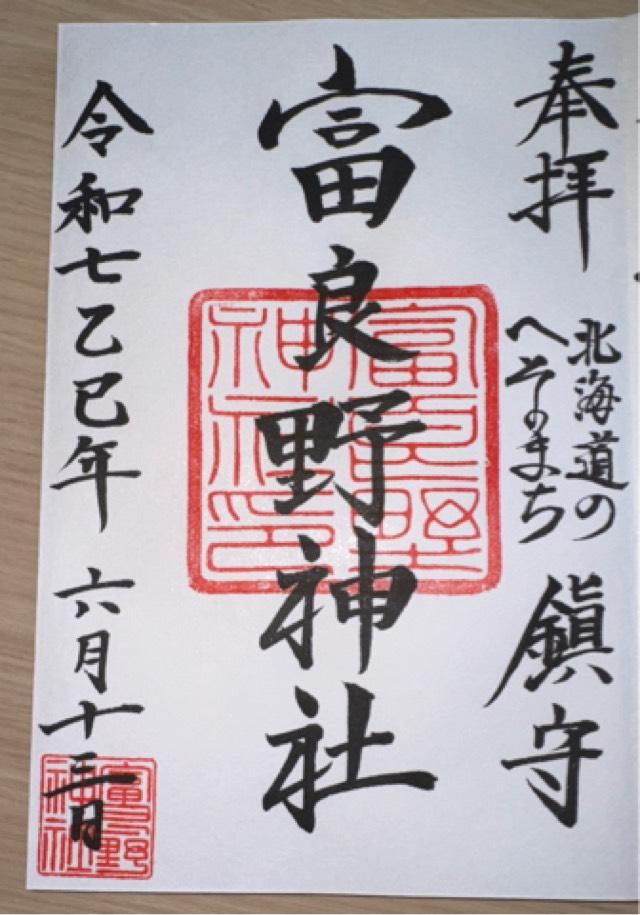 奉拝
北海道の
へそのまち
鎮守
富良野神社
富良野
神社印
令和七乙巳年 六月十 日
富良野
神社